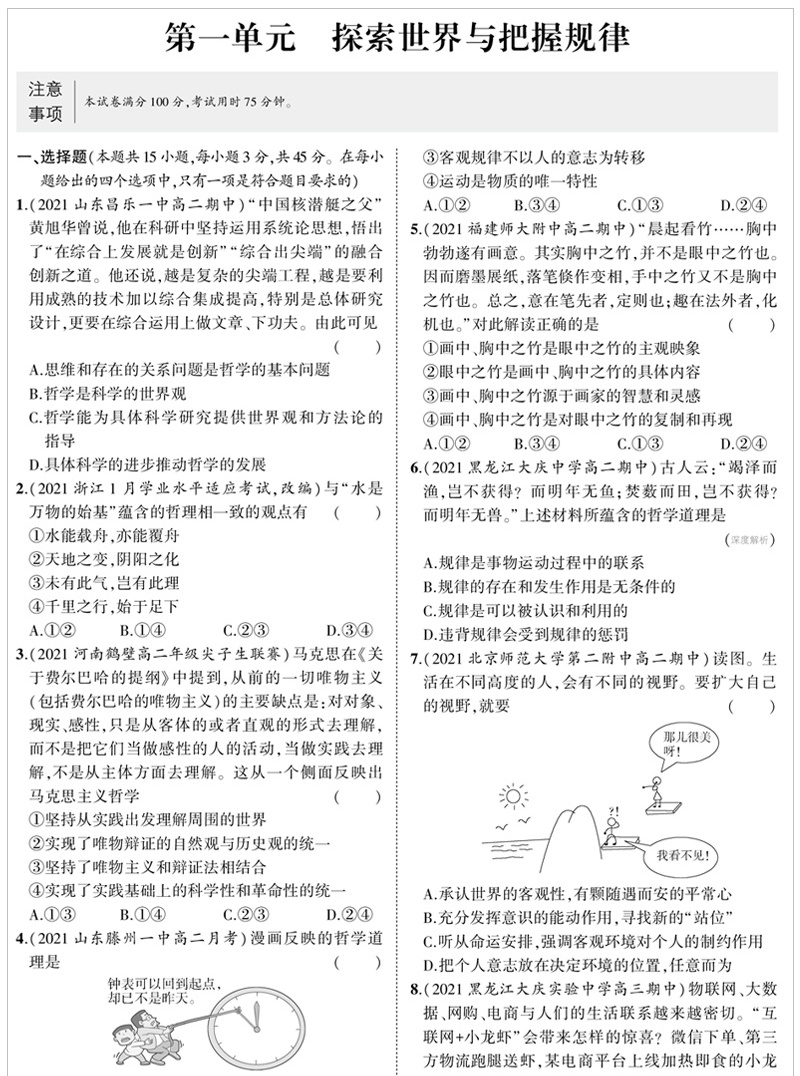 第一单元 探索世界与把握规律
注意
事项
本试卷满分100分,考试用时75分钟。
一、选择题(本题共15小题,每小题3分,共45分。在每小
题给出的四个选项中,只有一项是符合题目要求的)
1.(2021山东昌乐一中高二期中)“中国核潜艇之父”
黄旭华曾说,他在科研中坚持运用系统论思想,悟出
了“在综合上发展就是创新”“综合出尖端”的融合
创新之道。他还说,越是复杂的尖端工程,越是要利
用成熟的技术加以综合集成提高,特别是总体研究
设计,更要在综合运用上做文章、下功夫。由此可见
( )
A.思维和存在的关系问题是哲学的基本问题
B.哲学是科学的世界观
C.哲学能为具体科学研究提供世界观和方法论的
指导
D.具体科学的进步推动哲学的发展
2.(2021浙江1月学业水平适应考试,改编)与“水是
万物的始基”蕴含的哲理相一致的观点有 ( )
①水能载舟,亦能覆舟
②天地之变,阴阳之化
③未有此气,岂有此理
④千里之行,始于足下
A.①② B.①④ C.②③ D.③④
3.(2021河南鹤壁高二年级尖子生联赛)马克思在《关
于费尔巴哈的提纲》中提到,从前的一切唯物主义
(包括费尔巴哈的唯物主义)的主要缺点是:对对象、
现实、感性,只是从客体的或者直观的形式去理解,
而不是把它们当做感性的人的活动,当做实践去理
解,不是从主体方面去理解。这从一个侧面反映出
马克思主义哲学 ( )
①坚持从实践出发理解周围的世界
②实现了唯物辩证的自然观与历史观的统一
③坚持了唯物主义和辩证法相结合
④实现了实践基础上的科学性和革命性的统一
A.①③ B.①④ C.②③ D.②④
4.(2021山东滕州一中高二月考)漫画反映的哲学道
理是 ( )
钟表可以回到起点,
却已不是昨天。
③客观规律不以人的意志为转移
④运动是物质的唯一特性
A.①② B.③④ C.①③ D.②④
5.(2021福建师大附中高二期中)“晨起看竹……胸中
勃勃遂有画意。其实胸中之竹,并不是眼中之竹也。
因而磨墨展纸,落笔倏作变相,手中之竹又不是胸中
之竹也。总之,意在笔先者,定则也;趣在法外者,化
机也。”对此解读正确的是 ( )
①画中、胸中之竹是眼中之竹的主观映象
②眼中之竹是画中、胸中之竹的具体内容
③画中、胸中之竹源于画家的智慧和灵感
④画中、胸中之竹是对眼中之竹的复制和再现
A.①② B.③④ C.①③ D.②④
6.(2021黑龙江大庆中学高二期中)古人云:“竭泽而
渔,岂不获得?而明年无鱼;焚薮而田,岂不获得?
而明年无兽。”上述材料所蕴含的哲学道理是
(深度解析)
A.规律是事物运动过程中的联系
B.规律的存在和发生作用是无条件的
C.规律是可以被认识和利用的
D.违背规律会受到规律的惩罚
7.(2021北京师范大学第二附中高二期中)读图。生
活在不同高度的人,会有不同的视野。要扩大自己
的视野,就要 ( )
那儿很美
呀!
?!
我看不见!
A.承认世界的客观性,有颗随遇而安的平常心
B.充分发挥意识的能动作用,寻找新的“站位”
C.听从命运安排,强调客观环境对个人的制约作用
D.把个人意志放在决定环境的位置,任意而为
8.(2021黑龙江大庆实验中学高三期中)物联网、大数
据、网购、电商与人们的生活联系越来越密切。“互
联网+小龙虾”会带来怎样的惊喜?微信下单、第三
方物流跑腿送虾,某电商平台上线加热即食的小龙